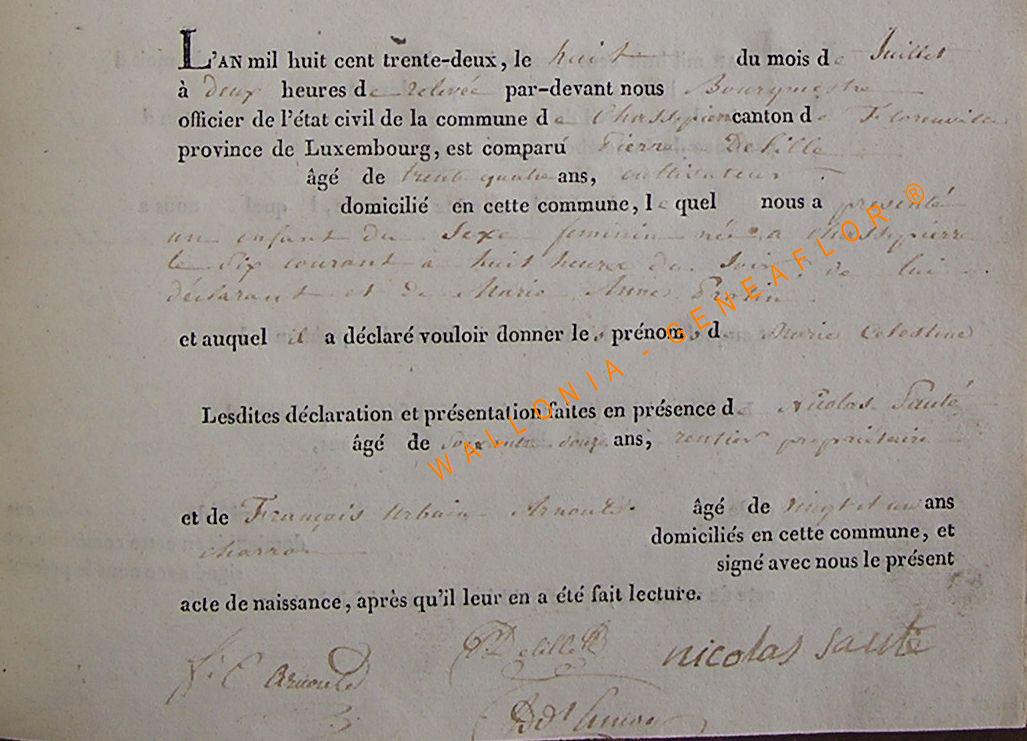 L'AN mil huit cent trente-deux, le huit du mois de Juillet
à deux heures de relevée par-devant nous Bourgmestre
officier de l'état civil de la commune de Chassepierre canton de Florenville
province de Luxembourg, est comparú Pierre Delille
âgé de trente quatre ans, cultivateur
domicilié en cette commune, lequel nous a présenté
un enfant du sexe feminin née à chassepierre
le six courant à huit heures du soir, de lui
déclarant et de Marie Anne
et auquel il a déclaré vouloir donner les prénoms de Marie Celestine
Lesdites déclaration et présentation faites en présence de Nicolas Sauté
âgé de soixante douze ans, rentier propriétaire
et de François Urbain Arnould âgé de vingt et un ans
charron domiciliés en cette commune, et
signé avec nous le présent
acte de naissance, après qu'il leur en a été fait lecture.
Arnould Delille nicolas sauté
WALLONIA - GENEAFLOR ®